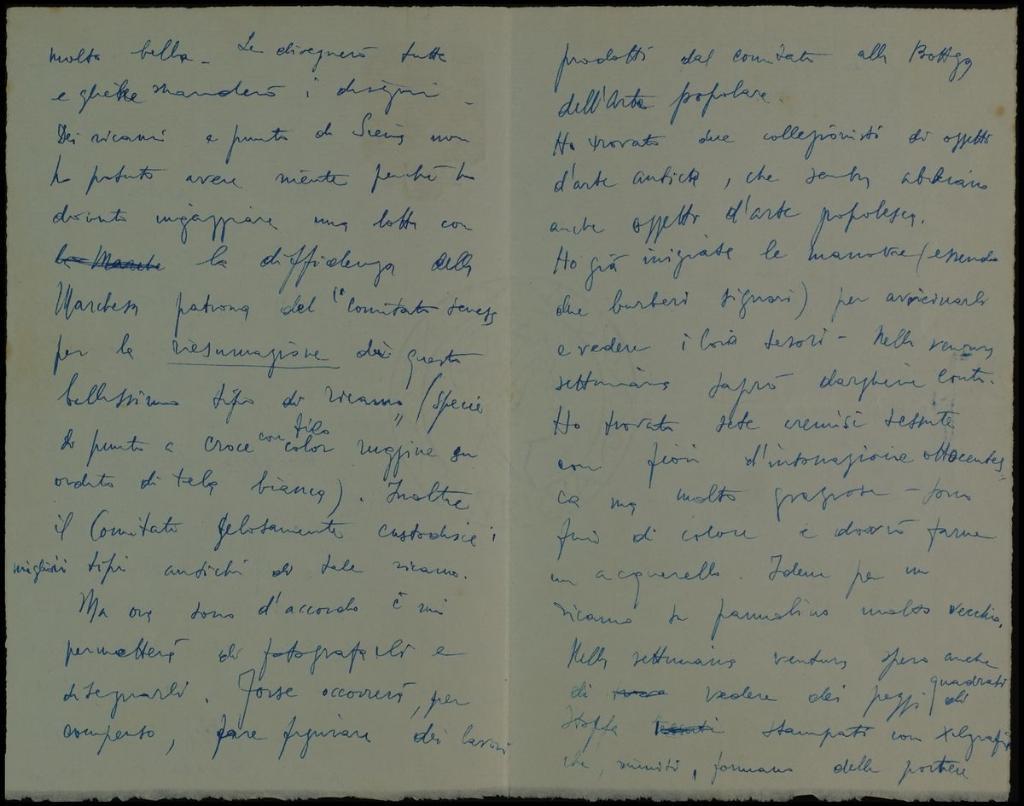 molto bella - Le disegnerò tutte
e gliene manderò i disegni -
Dei ricami a punto di Siena non
ho potuto avere niente perché ho
dovuto ingaggiare una lotta con
la diffidenza della
Marchesa patrona del Comitato senese
per la riesumazione di questo
bellissimo tipo di ricamo (specie
di punto a croce con filo color ruggine su
ordito di tela bianca). Inoltre
il Comitato gelosamente custodisce i
migliori tipi antichi di tale ricamo.
Ma ora sono d'accordo e mi
permetterà di fotografarli e
disegnarli. Forse occorrerà, per
compenso, fare figurare dei lavori
prodotti dal comitato alla Bottega
dell'Arte popolare.
Ho trovato due collezionisti di oggetti
d'arte antica, che sembra abbiano
anche oggetti d'arte popolesca.
Ho già iniziate le manovre (essendo
due burberi signori) per avvicinarli
e vedere i loro tesori - Nella ventura
settimana saprò dargliene conto.
Ho trovato sete cremisi tessute
con fiori d'intonazione ottocentes-
ca ma molto graziose - sono
fini di colore e dovrò farne
un acquerello. Idem per un
ricamo su pannolino molto vecchio.
Nella settimana ventura spero anche
di vedere dei pezzi quadrati di
stoffa stampati con xilografie
che, riuniti, formano delle portiere